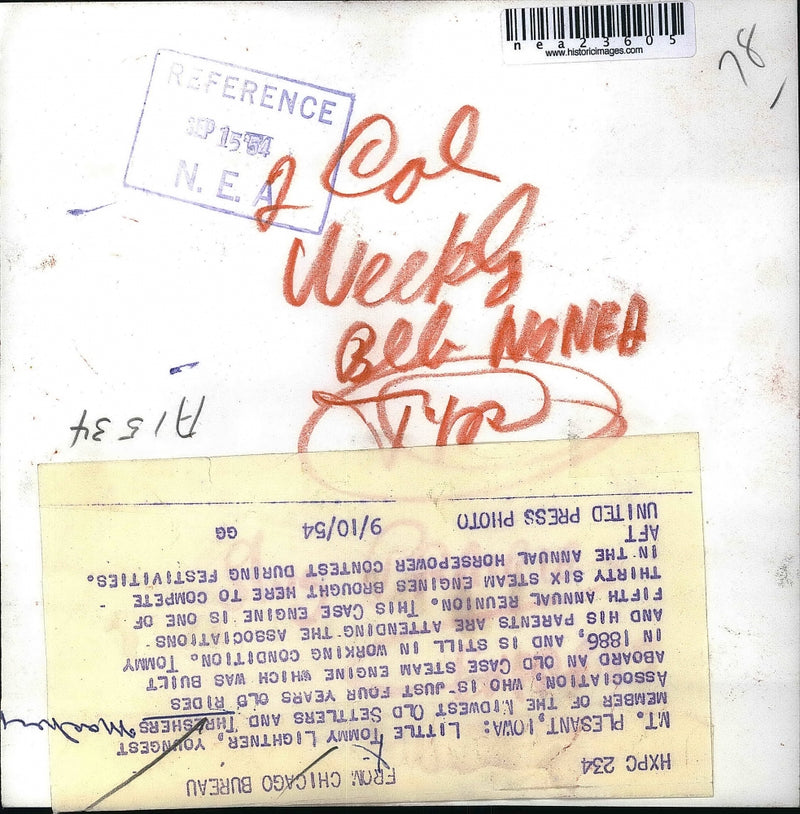 nea23605
www.historicimages.com
78
REFERENCE
SEP 15 '54
N. E. A
2 Col
Weekly
NO NEA
A1534
HXPC 234 FROM CHICAGO BUREAU
MT. PLESANT, IOWA: LITTLE TOMMY LIGHTNER, YOUNGEST
MEMBER OF THE MIDWEST OLD SETTLERS AND THRESHERS
ASSOCIATION, WHO IS JUST FOUR YEARS OLD RIDES
ABOARD AN OLD CASE STEAM ENGINE WHICH WAS BUILT
IN 1886, AND IS STILL IN WORKING CONDITION. TOMMY
AND HIS PARENTS ARE ATTENDING THE ASSOCIATIONS
FIFTH ANNUAL REUNION. THIS CASE ENGINE IS ONE OF
THIRTY SIX STEAM ENGINES BROUGHT HERE TO COMPETE
IN THE ANNUAL HORSEPOWER CONTEST DURING FESTIVITIES.
AFT
UNITED PRESS PHOTO 9/10/54 GG